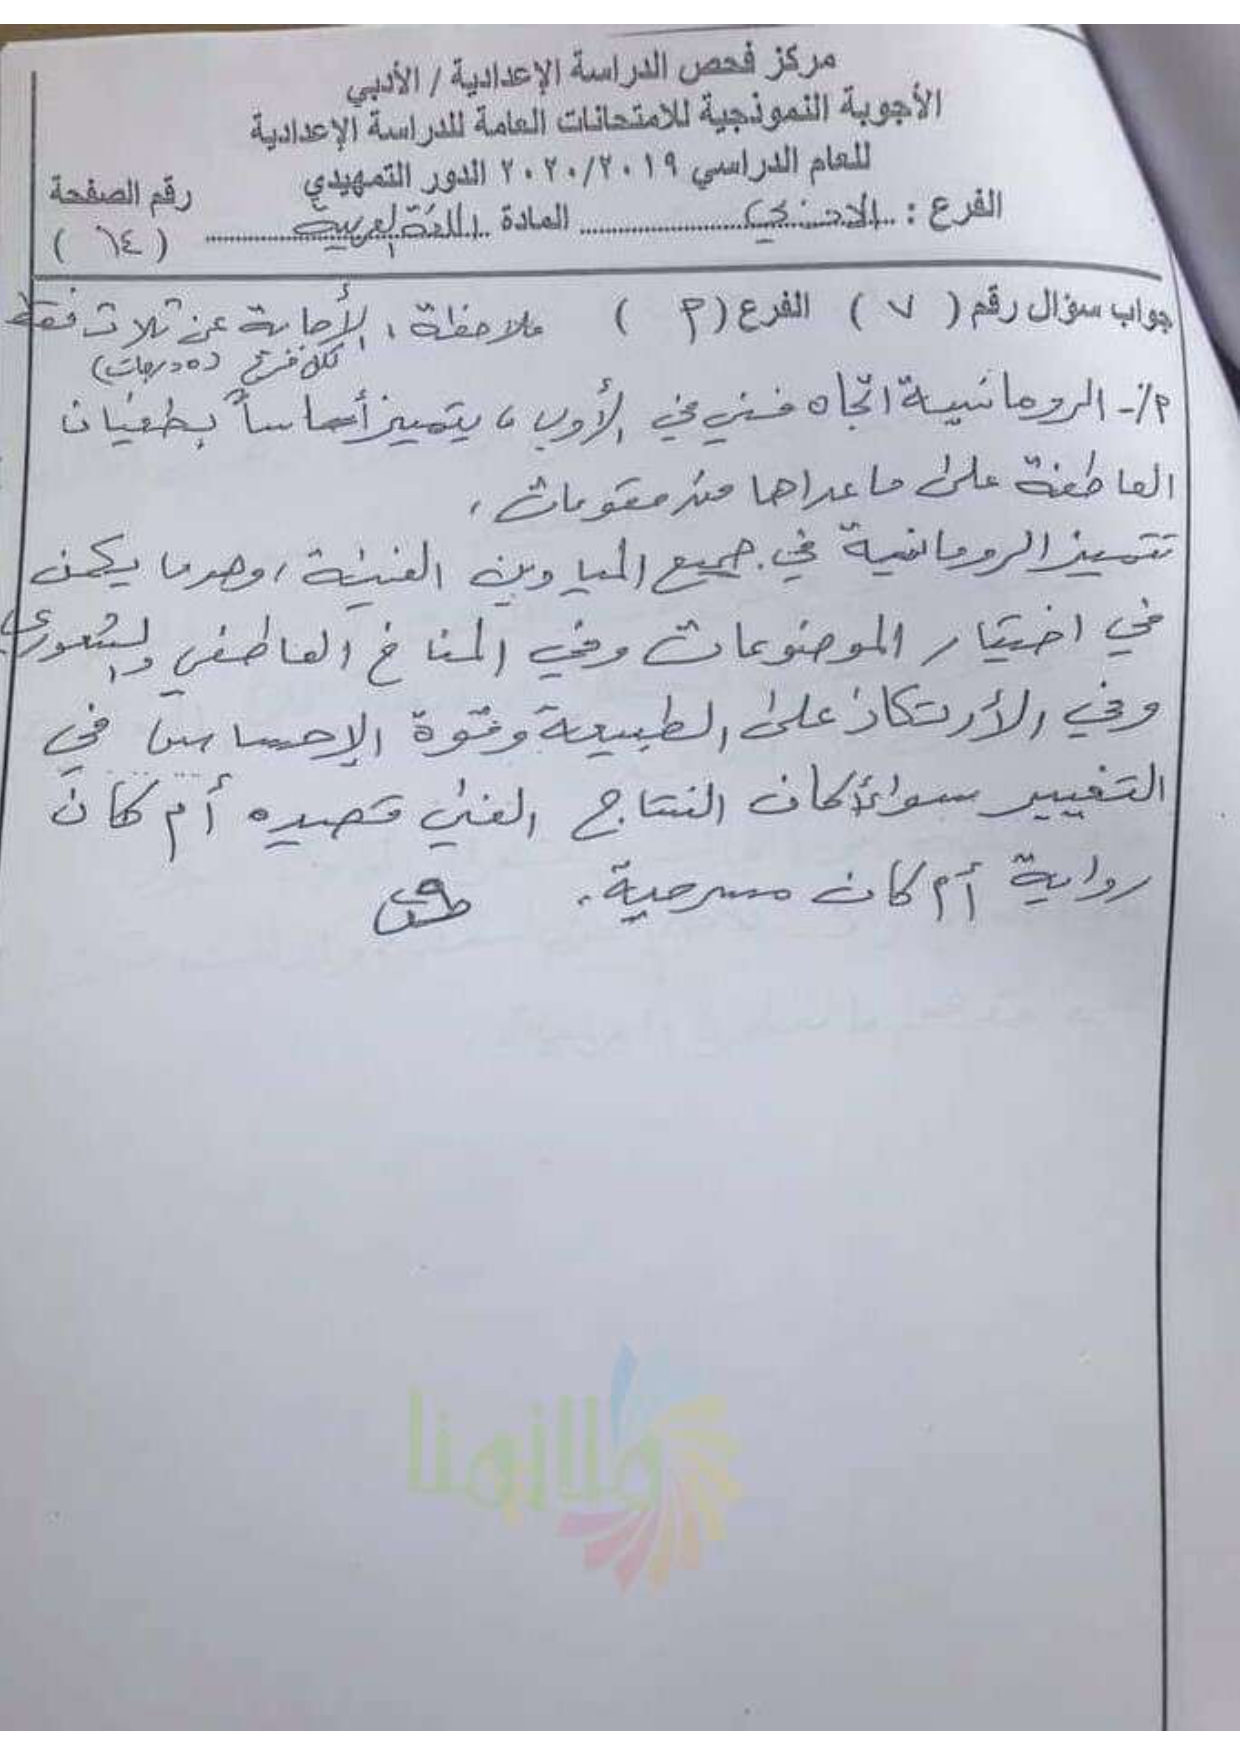 مركز فحص الدراسة الإعدادية / الأدبي
الأجوبة النموذجية للامتحانات العامة للدراسة الإعدادية
للعام الدراسي ٢٠٢٠/٢٠١٩ الدور التمهيدي
رقم الصفحة
الفرع : الادبي المادة اللغة العربية ( ١٤ )
جواب سؤال رقم ( ٧ ) الفرع ( م ) ملاحظة ، الإجابة عن ثلاث فقط
لكل فرع (٥ درجات)
م/- الرومانسية اتجاه فني في الأدب ، يتميز أساساً بطغيان
العاطفة على ما عداها من مقومات ،
تتميز الرومانسية في جميع الميادين الفنية ، وهو ما يكمن
في اختيار الموضوعات وفي المناخ العاطفي والشعوري
وفي الأرتكاز على الطبيعة وقوة الإحساس في
التغيير سواءً كان النتاج الفني قصيده أم كان
رواية أم كان مسرحية .
ملازمنا